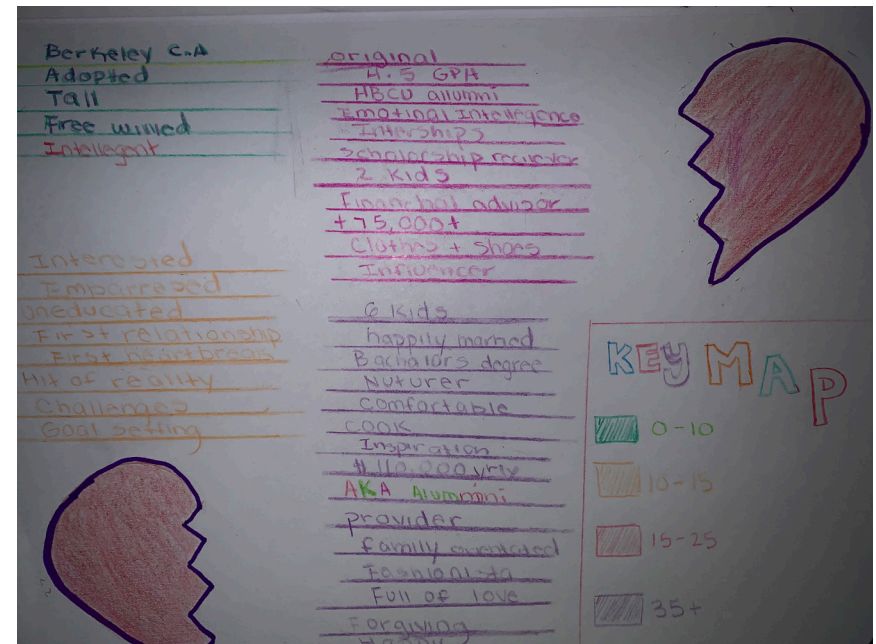 Berkeley C.A
Adopted
Tall
Free willed
Intellegent
Interested
Embarresed
uneducated
First relationship
First heartbreak
Hit of reality
Challenges
Goal setting
original
4.5 GPA
HBCU allumni
Emotinal Intellegence
Interships
Scholarship reciever
2 Kids
Financhal advisor
+75,000+
Clothes + Shoes
Influencer
6 Kids
happily married
Bachalors degree
Nuturer
Comfortable
COOK
Inspiration
$110,000 yrly
AKA Alummini
provider
family ouentated
Fashionista
Full of love
Forgiving
Happy
KEY MAP
0-10
10-15
15-25
35+